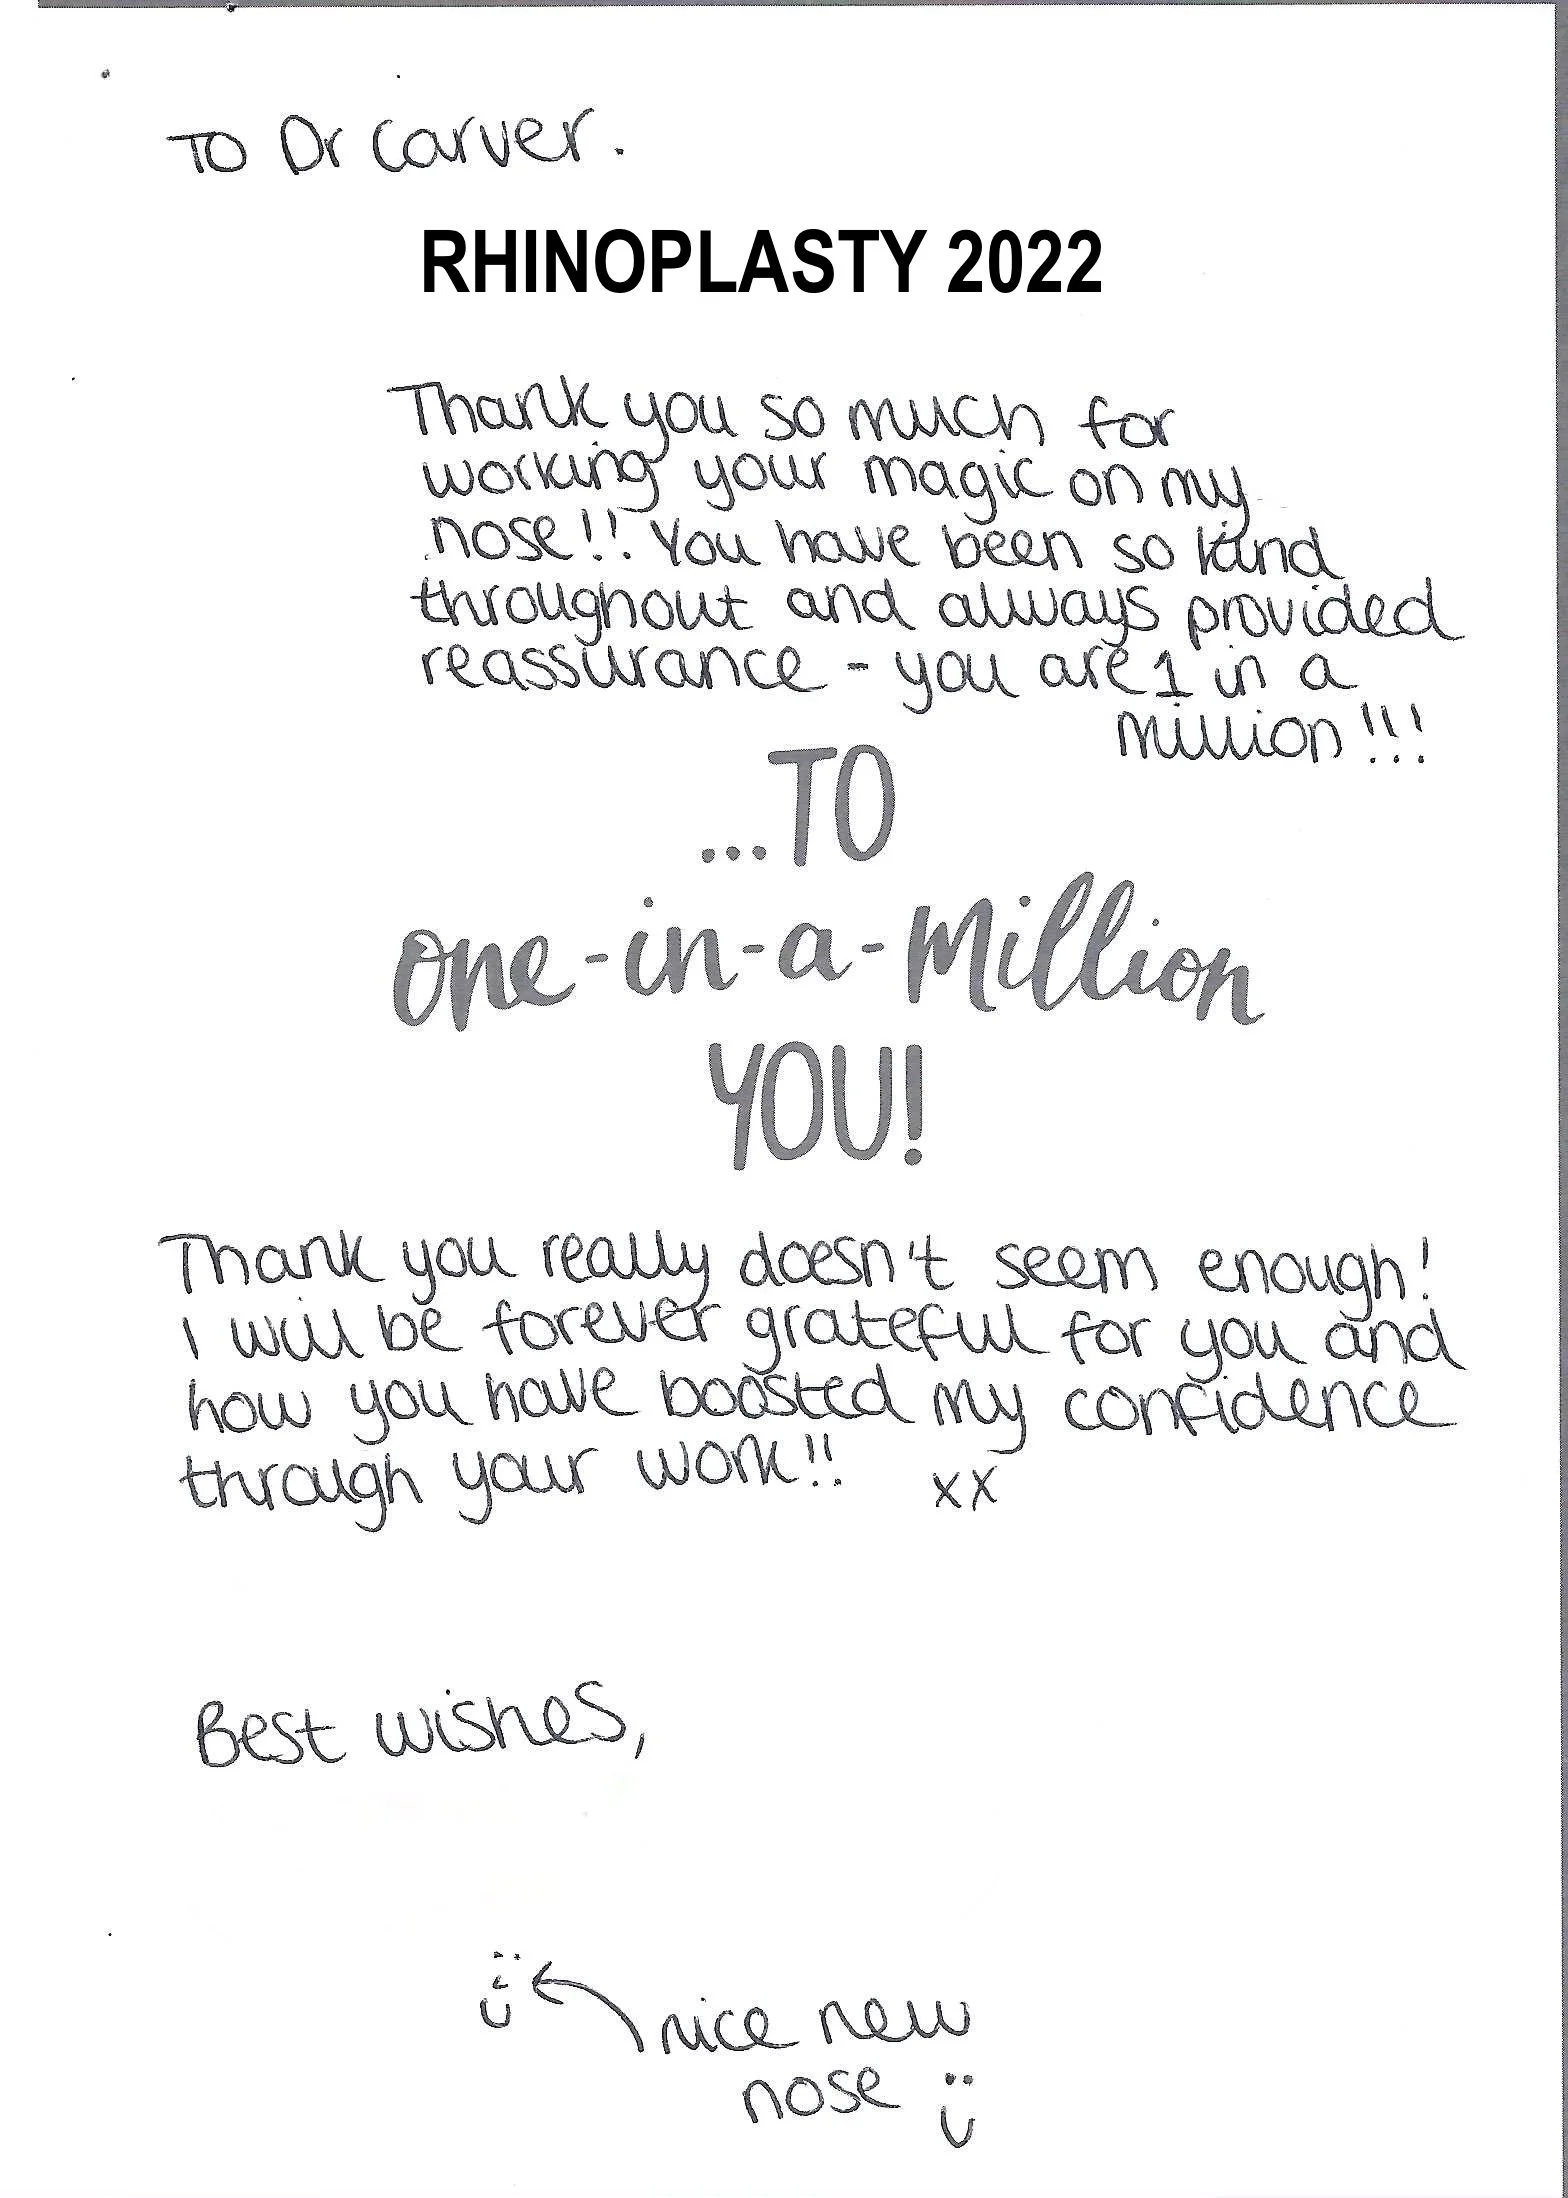 To Dr Carver.
RHINOPLASTY 2022
Thank you so much for
working your magic on my
nose!! You have been so kind
throughout and always provided
reassurance - you are 1 in a
million!!!
...TO
one-in-a-million
YOU!
Thank you really doesn't seem enough!
I will be forever grateful for you and
how you have boosted my confidence
through your work!! xx
Best wishes,
nice new
nose